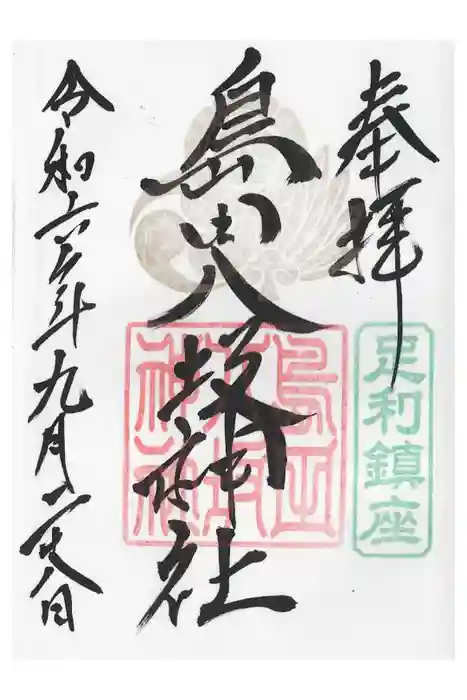 奉拝
足利鎮座
島田八坂神社
島田
八坂
神社
令和六年九月二十八日